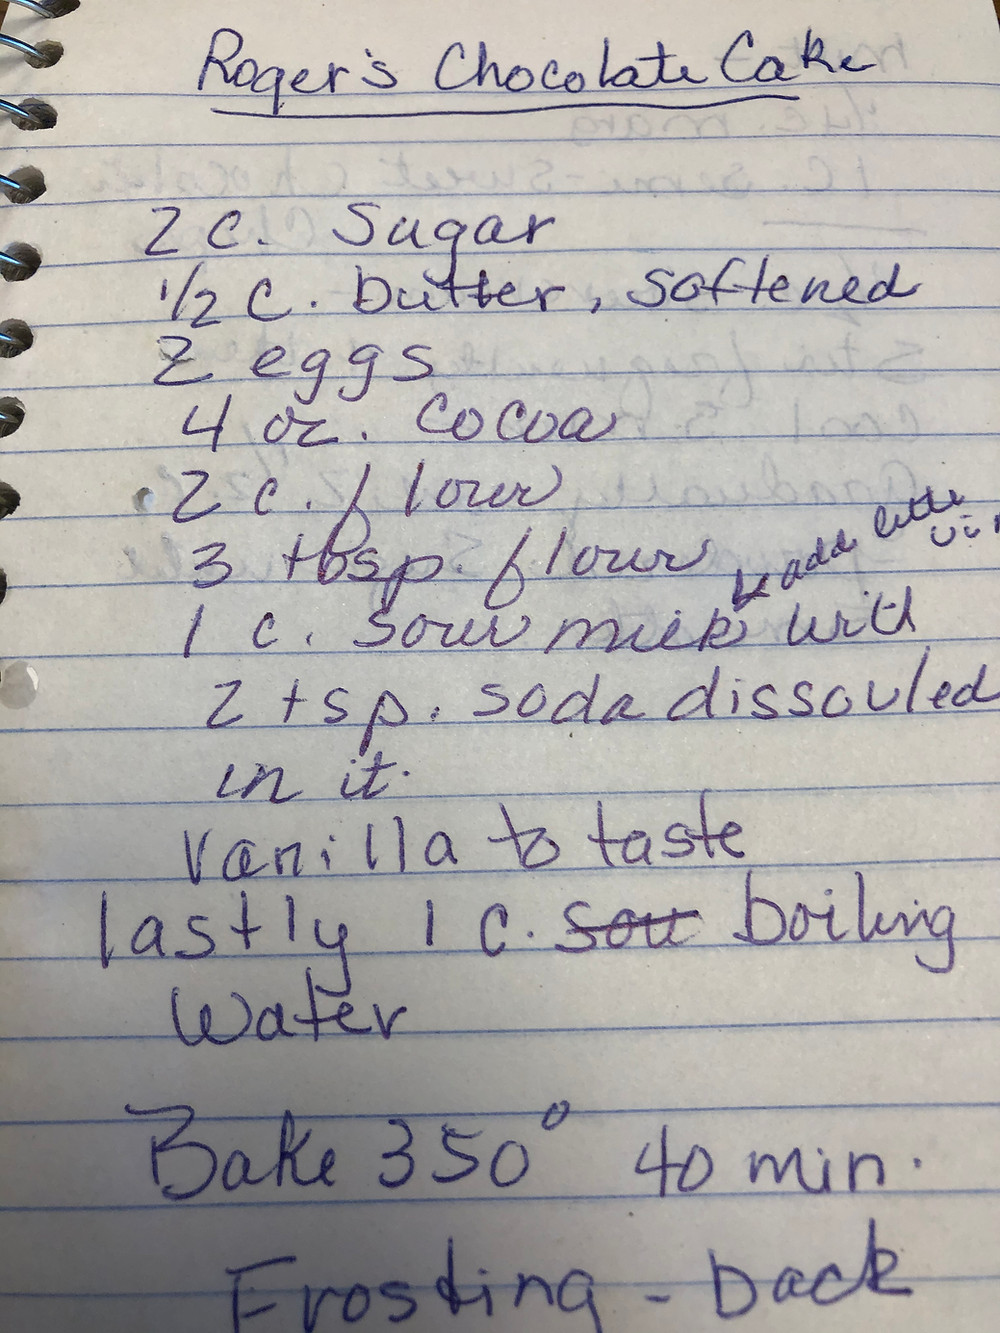 Roger's Chocolate Cake
2 c. Sugar
1/2 c. butter, softened
2 eggs
4 oz. cocoa
2 c. flour
3 tbsp. flour
add little
1 c. sour milk with
2 tsp. soda dissouled
in it.
Vanilla to taste
lastly 1 c. sou boiling
Water
Bake 350° 40 min.
Frosting - back